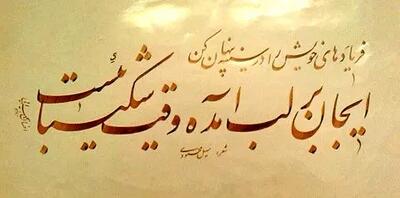 فریادهای خویش را در سینه پنهان کن
ای جان بر لب آمده وقت شکیبائیست
شعر: سهیل محمودی